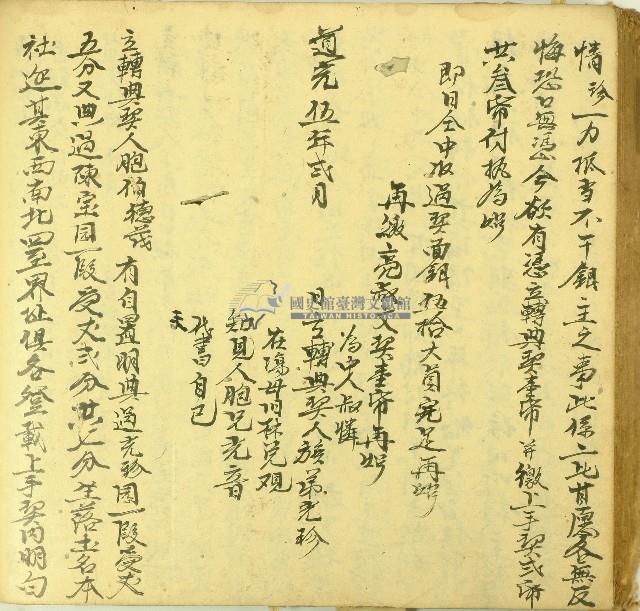 情珍一力抵当不干銀主之事此係二比甘愿各無反
悔恐口無憑今欲有憑立轉典契壹帋并繳上手契弍帋
共叁帋付执為炤
即日仝中收過契面銀伍拾大員完足再炤
再繳亮 文契壹帋再炤
為中人叔憐
道光伍年弍月 日立轉典契人族弟光珍
在塲母旧林兑观
知見人胞兄光音
代書自己
立轉典契人胞伯穗茂 有自置明典過光珍園一段受丈
五分又典過陳宗園一段受丈弍分共七分坐落土名本
社迎其東西南北四至界址俱各登載上手契内明白
國史館臺灣文獻館
TAIWAN HISTORICA